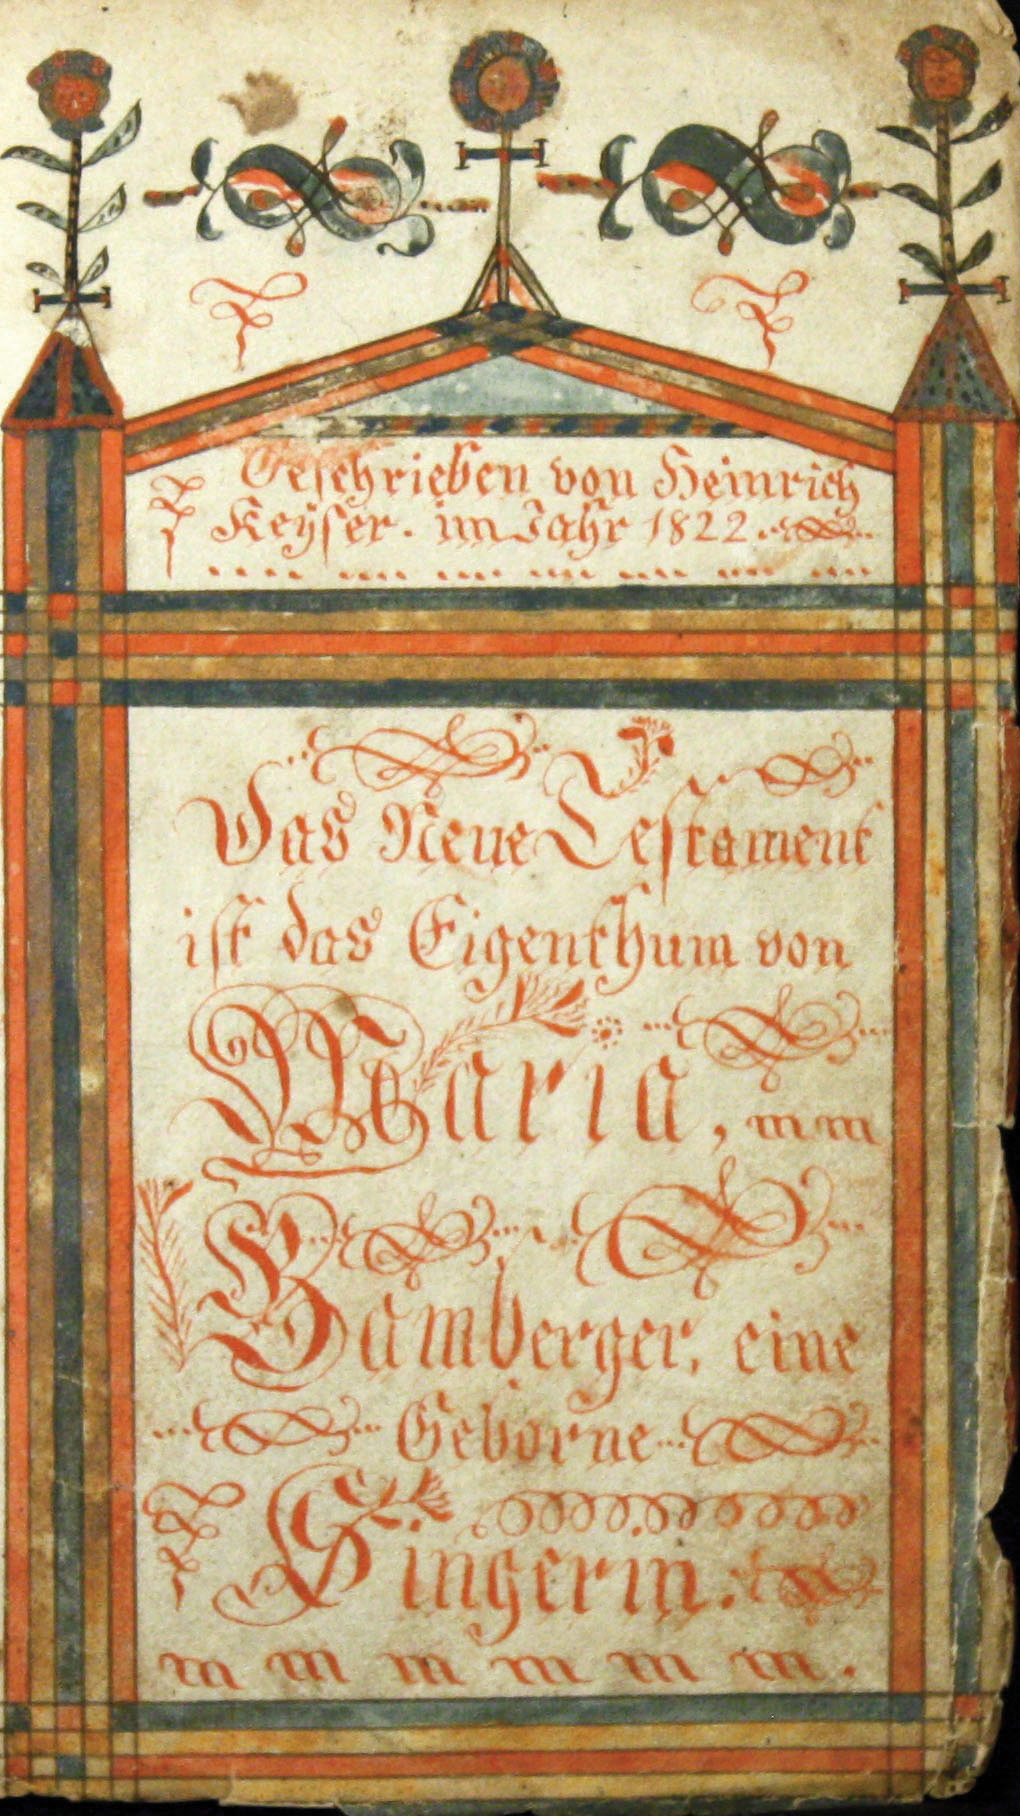 Geschrieben von Heinrich
Keyser. im Jahr 1822.
Das Neue Testament
ist das Eigenthum von
Maria,
Bamberger, eine
Geborne
Singerin.